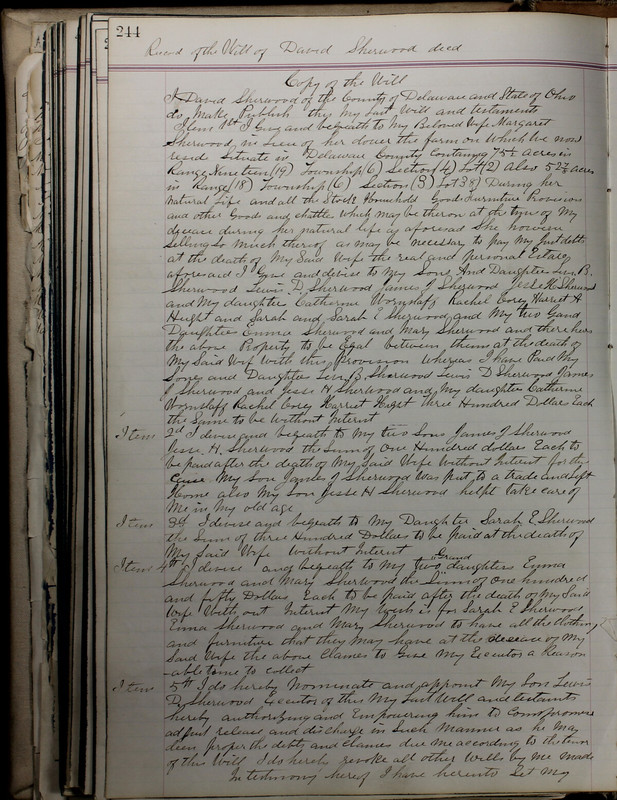 244
Record of the Will of David Sherwood decd
Copy of the Will
I David Sherwood of the County of Delaware and State of Ohio
do Make Publish this My Last Will and testaments
Item 1st I Give and beqeath to My Beloved Wife Margaret
Sherwood in lieu of her dower the farm on Which We now
resid Situate in Delaware County Containing 75½ acres in
Range Nineteen (19) Township (6) Section (4) Lot (2) Also 52 acres
in Range (18) Township (6) Section (3) Lot 38 During her
Natural Life and all the Stock Household Goods Furniture Provision
and other Goods and chattle Which may be theron at the time of My
decease during her natural life as aforesaid She however
Selling so Much therof as may be necessary to pay My Just debts
at the death of My Said Wife the real and personal Estate
aforesaid I Give and devise to My Sons And Daughters Levi B.
Sherwood Lewis D. Sherwood James J Sherwood Jesse H Sherwood
and My daughter Catherine Wornstaff Rachel Corey Harriet A
Hight and Sarah and Sarah E Sherwood and My two Gand
Daughters Emma Sherwood and Mary Sherwood and there heirs
the above Property to be Eqal between them at the death of
My Said Wif With this Provision Whereas I have Paid My
Sons and Daughter Levi B Sherwood Lewis D Sherwood James
J Sherwood and Jesse H Sherwood and My daughter Catherine
Wornstaff Rachel Corey Harriet Hight three Hundred Dollars Each
the Same to be Without Interest
Item 2d I devise and beqeath to My two Sons James J Sherwood
Jesse H. Sherwood the Sum of One Hundred dollars Each to
be paid after the death of My Said Wife Without Interest for the
Cause My Son James J Sherwood Was put to a trade and left
Home also My Son Jesse H Sherwood helpt take care of
Me in My old age
Item 3d I devise and beqeath to My Daughter Sarah E Sherwood
the Sum of three Hundred Dollars to be Paid at the death of
My Said Wife Without Interest
Item 4th I devise and beqeath to My two "Grand" daughters Emma
Sherwood and Mary Sherwood the Sum of One hundred
and fifty Dollars Each to be paid after the death of My Said
Wife With out Interest My Wish is for Sarah E Sherwood
Emma Sherwood and Mary Sherwood to have all the Clothing
and furniture that they May have at the decease of My
Said Wife the above Clames to Give My Executor a Reason
-able time to collect
Item 5th I do hereby Nominate and appoint My Son Lewis
D. Sherwood Executor of this My Last Will and testaments
hereby authorizing and Empowering him to Compromise
adjust release and discharge in Such Manner as he May
deem proper the debts and Clames due Me according to the tenor
of this Will I do hereb revoke all other Wills by Me Made
In testimony herof I have hereunto Set My